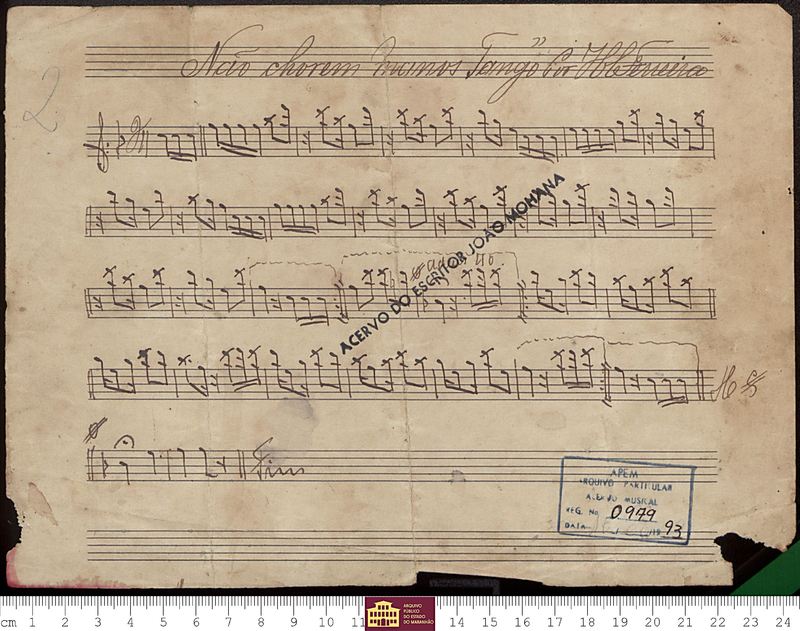 Não chorem manos Tango Por
2
ACERVO DO ESCRITOR JOÃO MOHANA
Fim
APEM
ARQUIVO PARTICULAR
ACERVO MUSICAL
REG. No. 0979
DATA 1993
cm 1 2 3 4 5 6 7 8 9 10 11 14 15 16 17 18 19 20 21 22 23 24
ARQUIVO
PÚBLICO
DO ESTADO
DO MARANHÃO